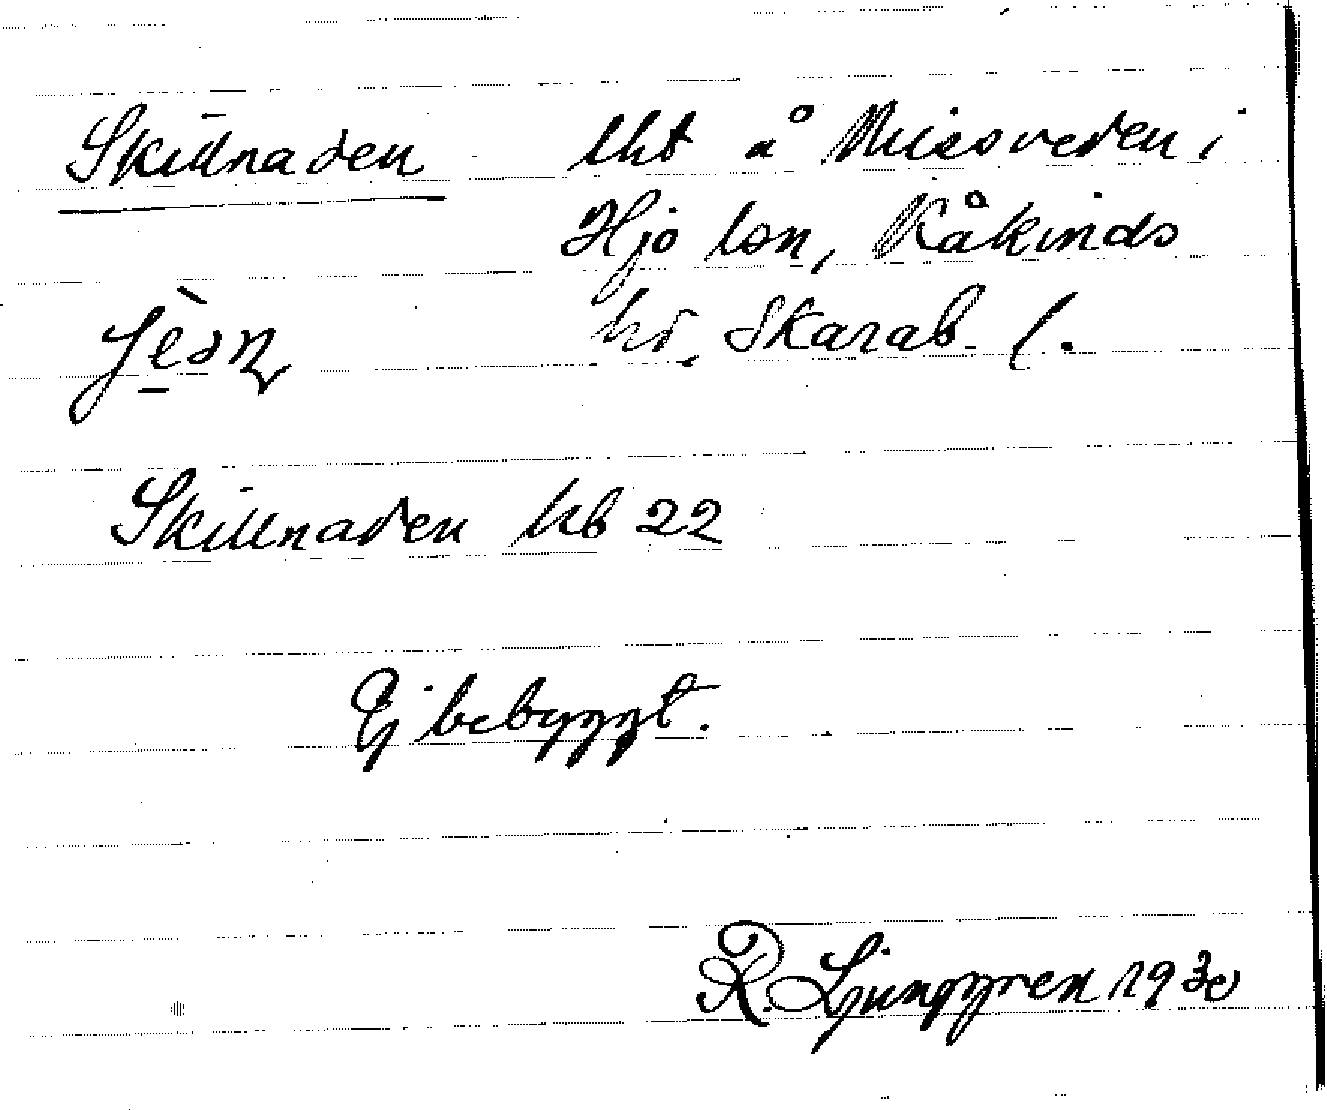 Skillnaden lht å Missveden i
Hjo lsn, Kåkinds
hd, Skarab. l.
Skillnaden kb 22
Ej bebyggt.
R. Ljunggren 1930